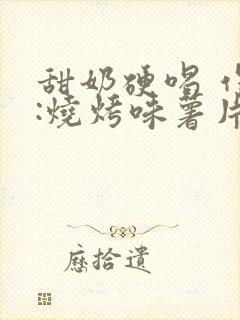 甜奶硬唱
:燒烤味薯片
歷拾遺